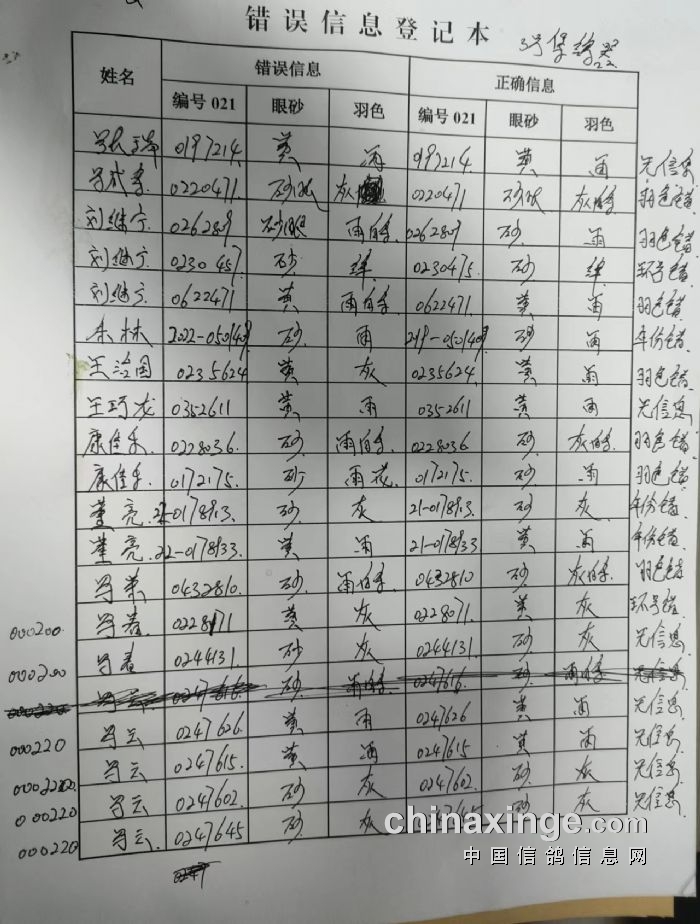 错误信息登记本
3号
姓名 错误信息 正确信息
编号021 眼砂 羽色 编号021 眼砂 羽色
0197214 黄 雨 0197214 黄 雨 无信息
0220471 砂眼 灰 0220471 砂眼 灰白条 羽色错
刘继宁 0262809 砂眼 雨白条 0262809 砂 雨 羽色错
刘继宁 0230457 砂 绛 0230475 砂 绛 环号错
刘继宁 0622471 黄 雨白条 0622471 黄 雨 羽色错
朱林 2022-0501409 砂 雨 砂 雨 年份错
王治国 0235624 黄 灰 0235624 黄 雨 羽色错
王巧龙 0352611 黄 雨 0352611 黄 雨 无信息
康佳乐 0228036 砂 雨白条 0228036 砂 灰白条 羽色错
康佳乐 0172175 砂 雨花 0172175 砂 雨 羽色错
董亮 22-0178913 砂 灰 21-0178913 砂 灰 年份错
董亮 22-0178933 黄 雨 21-0178933 黄 雨 年份错
0432810 砂 雨白条 0432810 砂 灰白条 羽色错
000200 黄 灰 0228071 黄 灰 环号错
000200 0244131 砂 灰 0244131 砂 灰 无信息
0247616 砂 雨白条 0247616 砂 雨白条 无信息
000220 0247626 黄 雨 0247626 黄 雨 无信息
0247615 黄 雨 0247615 黄 雨 无信息
000220 0247602 砂 灰 0247602 砂 灰 无信息
000220 0247645 砂 灰 砂 灰 无信息
chinaxinge.com
中国信鸽信息网